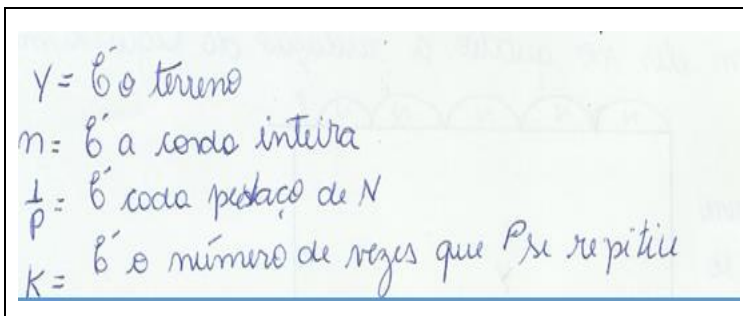 Y = É o terreno
n = É a corda inteira
1/P = É cada pedaço de N
K = É o número de vezes que P se repitiu